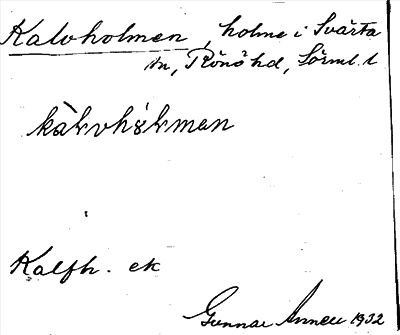 Kalvholmen, holme i Svärta
sn, Rönö hd, Sörml. l
kàɫvhɔ̀ɫman
Kalfh. ek
Gunnar Anneu 1932